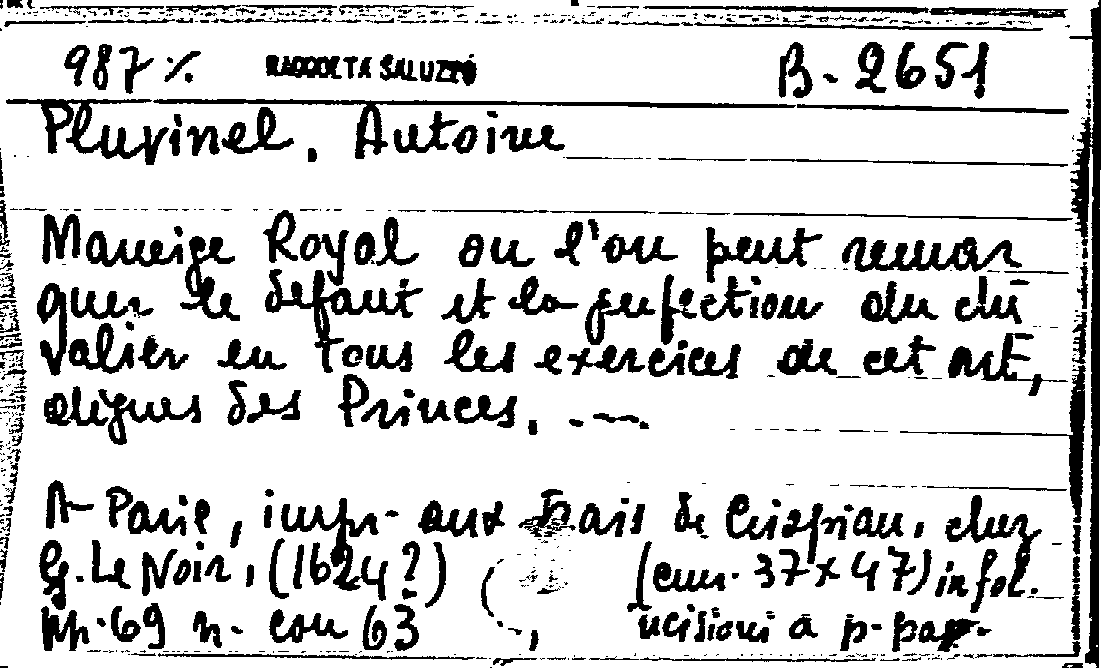 987 ./. RACCOLTA SALUZZO B-2651
Pluvinel, Antoine
Maneige Royal ou l'on peut remar
quer le defaut et la perfection du che
valier en tous les exercices de cet art,
dignes des Princes. ...
A Paris, impr. aux frais de Crispian, chez
G. Le Noir, (1624?) (cm. 37x47) in fol.
pp. 69 n. con 63 incisioni a p. pag.